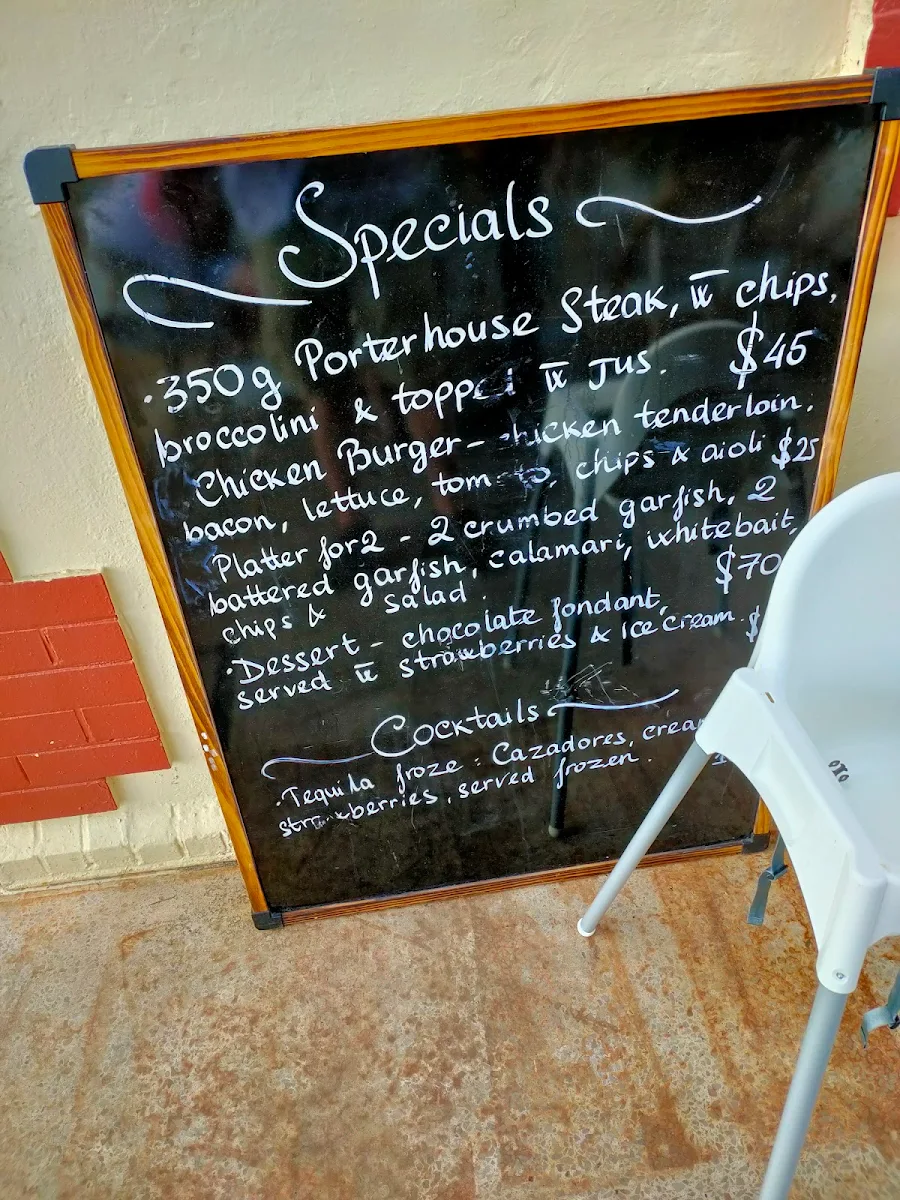 Specials
.350g Porterhouse Steak, w̅ chips,
broccolini & topped w̅ Jus. $45
Chicken Burger - chicken tenderloin.
bacon, lettuce, tomato, chips & aioli $25
Platter for 2 - 2 crumbed garfish, 2
battered garfish, calamari, whitebait,
chips & salad. $70
.Dessert - chocolate fondant,
served w̅ strawberries & Ice Cream. $
Cocktails
.Tequila froze : Cazadores,
strawberries, served frozen.